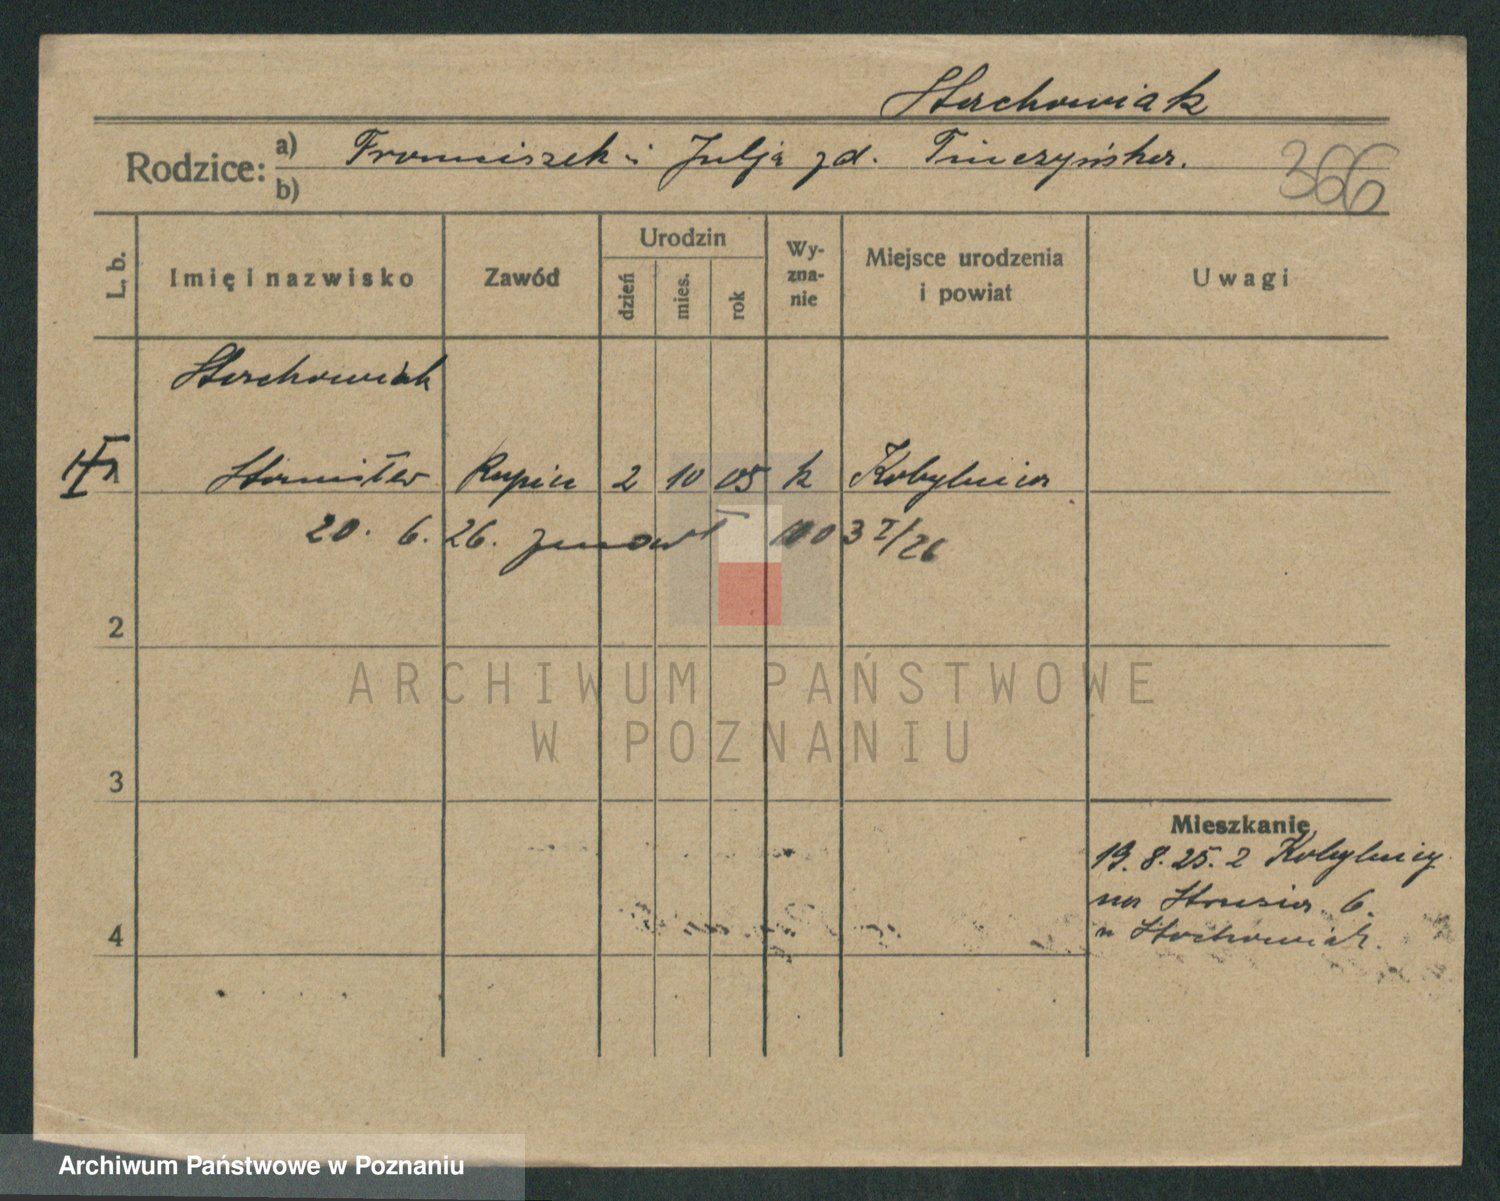 Stachowiak
Rodzice: a) Franciszek i Julja zd. Tuczyńska.
b)
366
L. b. Imię i nazwisko Zawód Urodzin dzień mies. rok Wyznanie Miejsce urodzenia i powiat Uwagi
Stachowiak
Stanisław Kupiec 2 10 05 k Kobylnica
20. 6. 26. zmarł 1003 I/26
2
ARCHIWUM PAŃSTWOWE
W POZNANIU
3
Mieszkanie
19. 8. 25. z Kobylnicy
na Strusia 6.
u Stachowiak.
4
Archiwum Państwowe w Poznaniu